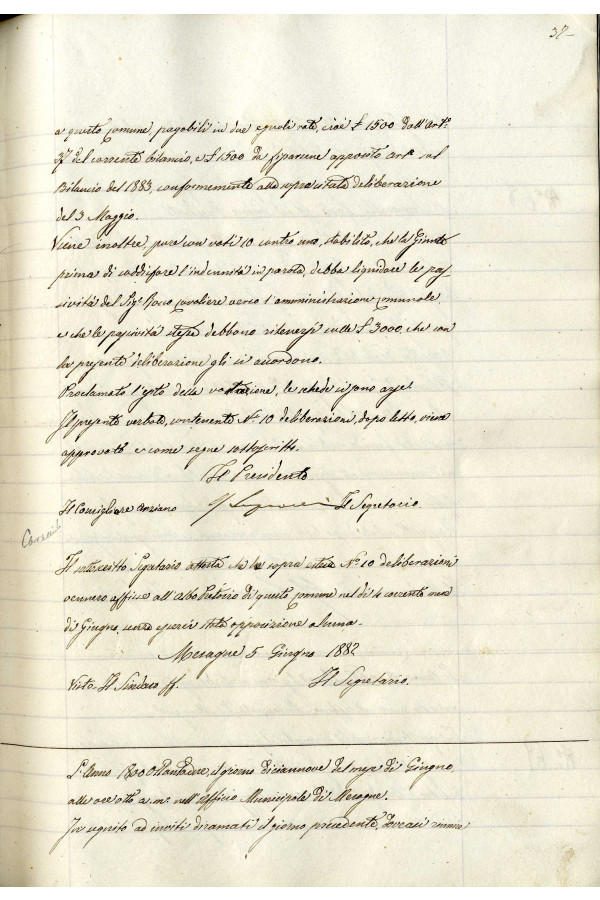 a questo comune, pagabili in due eguali rate, cioè £ 1500 dall'Art.o
37 del corrente bilancio, e £ 1500 da fissarsene apposito art.o sul
Bilancio del 1883, conformemente alla sopra citata deliberazione
del 3 Maggio.
Viene inoltre, pure con voti 10 contro uno, stabilito, che la Giunta
prima di soddisfare l'indennità in parola, debba liquidare le pas-
sività del Sig.r cavaliere verso l'amministrazione comunale
e che le passività stesse debbono ritenersi sulle £ 3000, che con
la presente deliberazione gli si accordono.
Proclamato l'esito della votazione, le schede si sono arse.
Il presente verbale, contenente N.o 10 deliberazioni, dopo letto, viene
approvato e come segue sottoscritto.
Il Presidente
Il Consigliere Anziano Il Segretario
Il sottoscritto Segretario attesta che le sopra estese N.o 10 deliberazioni
vennero affisse all'Albo Pretorio di questo comune nel dì 4 corrente mese
di Giugno, senza esservi stata opposizione alcuna.
Mesagne 5 Giugno 1882
Visto Il Sindaco ff. Il Segretario.
L'Anno 1800 ottantadue, il giorno diciannove del mese di Giugno,
alle ore otto a.m. nell'Ufficio Municipale di Mesagne.
In seguito ad inviti diramati il giorno precedente, doveasi riunire